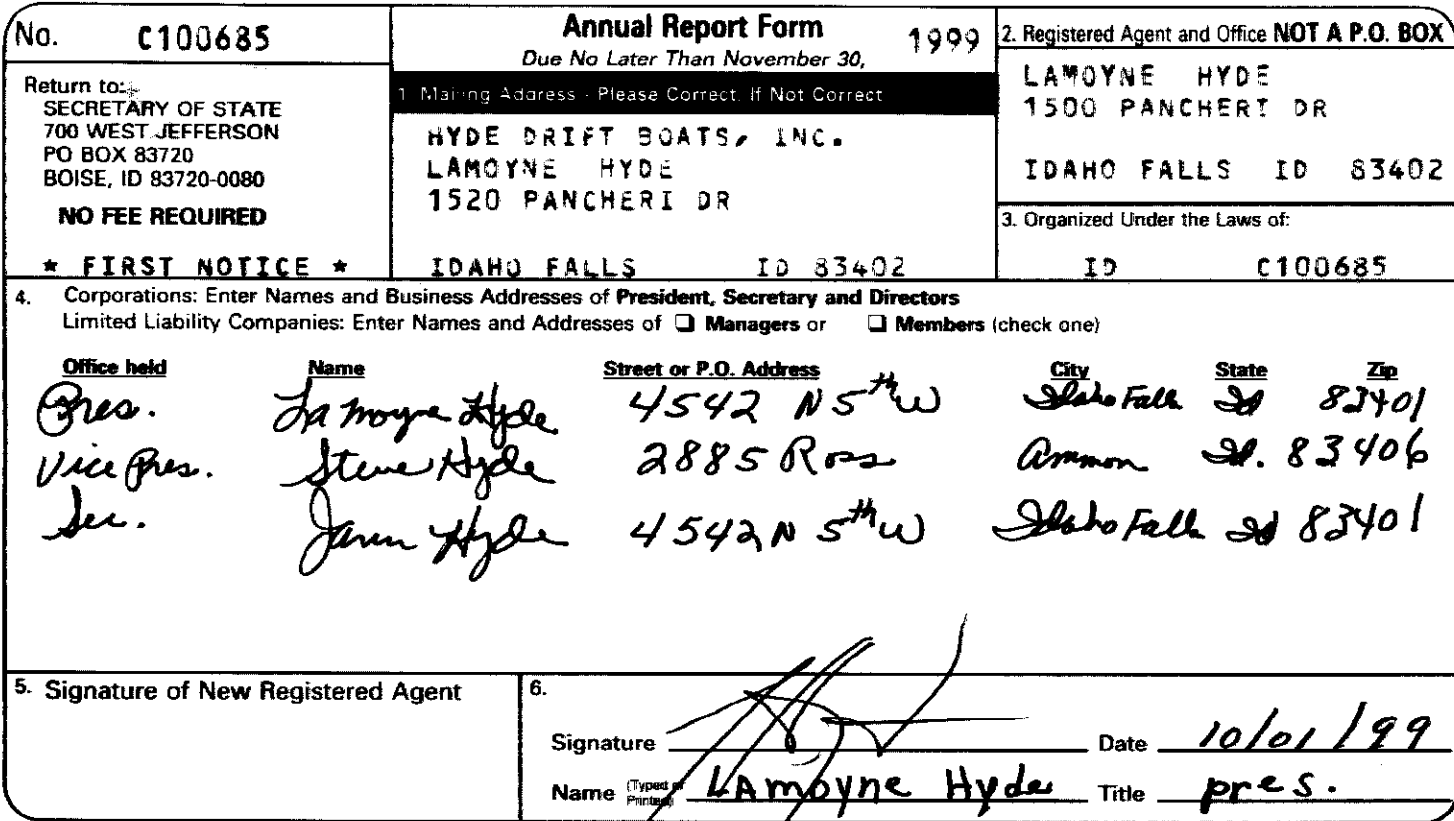 No. C100685
Return to:
SECRETARY OF STATE
700 WEST JEFFERSON
PO BOX 83720
BOISE, ID 83720-0080
NO FEE REQUIRED
* FIRST NOTICE *
Annual Report Form 1999
Due No Later Than November 30,
1. Mailing Address - Please Correct, If Not Correct
HYDE DRIFT BOATS, INC.
LAMOYNE HYDE
1520 PANCHERI DR
IDAHO FALLS ID 83402
2. Registered Agent and Office NOT A P.O. BOX
LAMOYNE HYDE
1500 PANCHERI DR
IDAHO FALLS ID 83402
3. Organized Under the Laws of:
ID C100685
4. Corporations: Enter Names and Business Addresses of President, Secretary and Directors
Limited Liability Companies: Enter Names and Addresses of ❑ Managers or ❑ Members (check one)
Office held Name Street or P.O. Address City State Zip
Pres. LaMoyne Hyde 4542 N 5th W Idaho Falls Id 83401
Vice Pres. Steve Hyde 2885 Ross Ammon Id. 83406
Sec. Hyde 4542 N 5th W Idaho Falls Id 83401
5. Signature of New Registered Agent
6.
Signature Date 10/01/99
Name (Typed or Printed) LAmoyne Hyde Title pres.